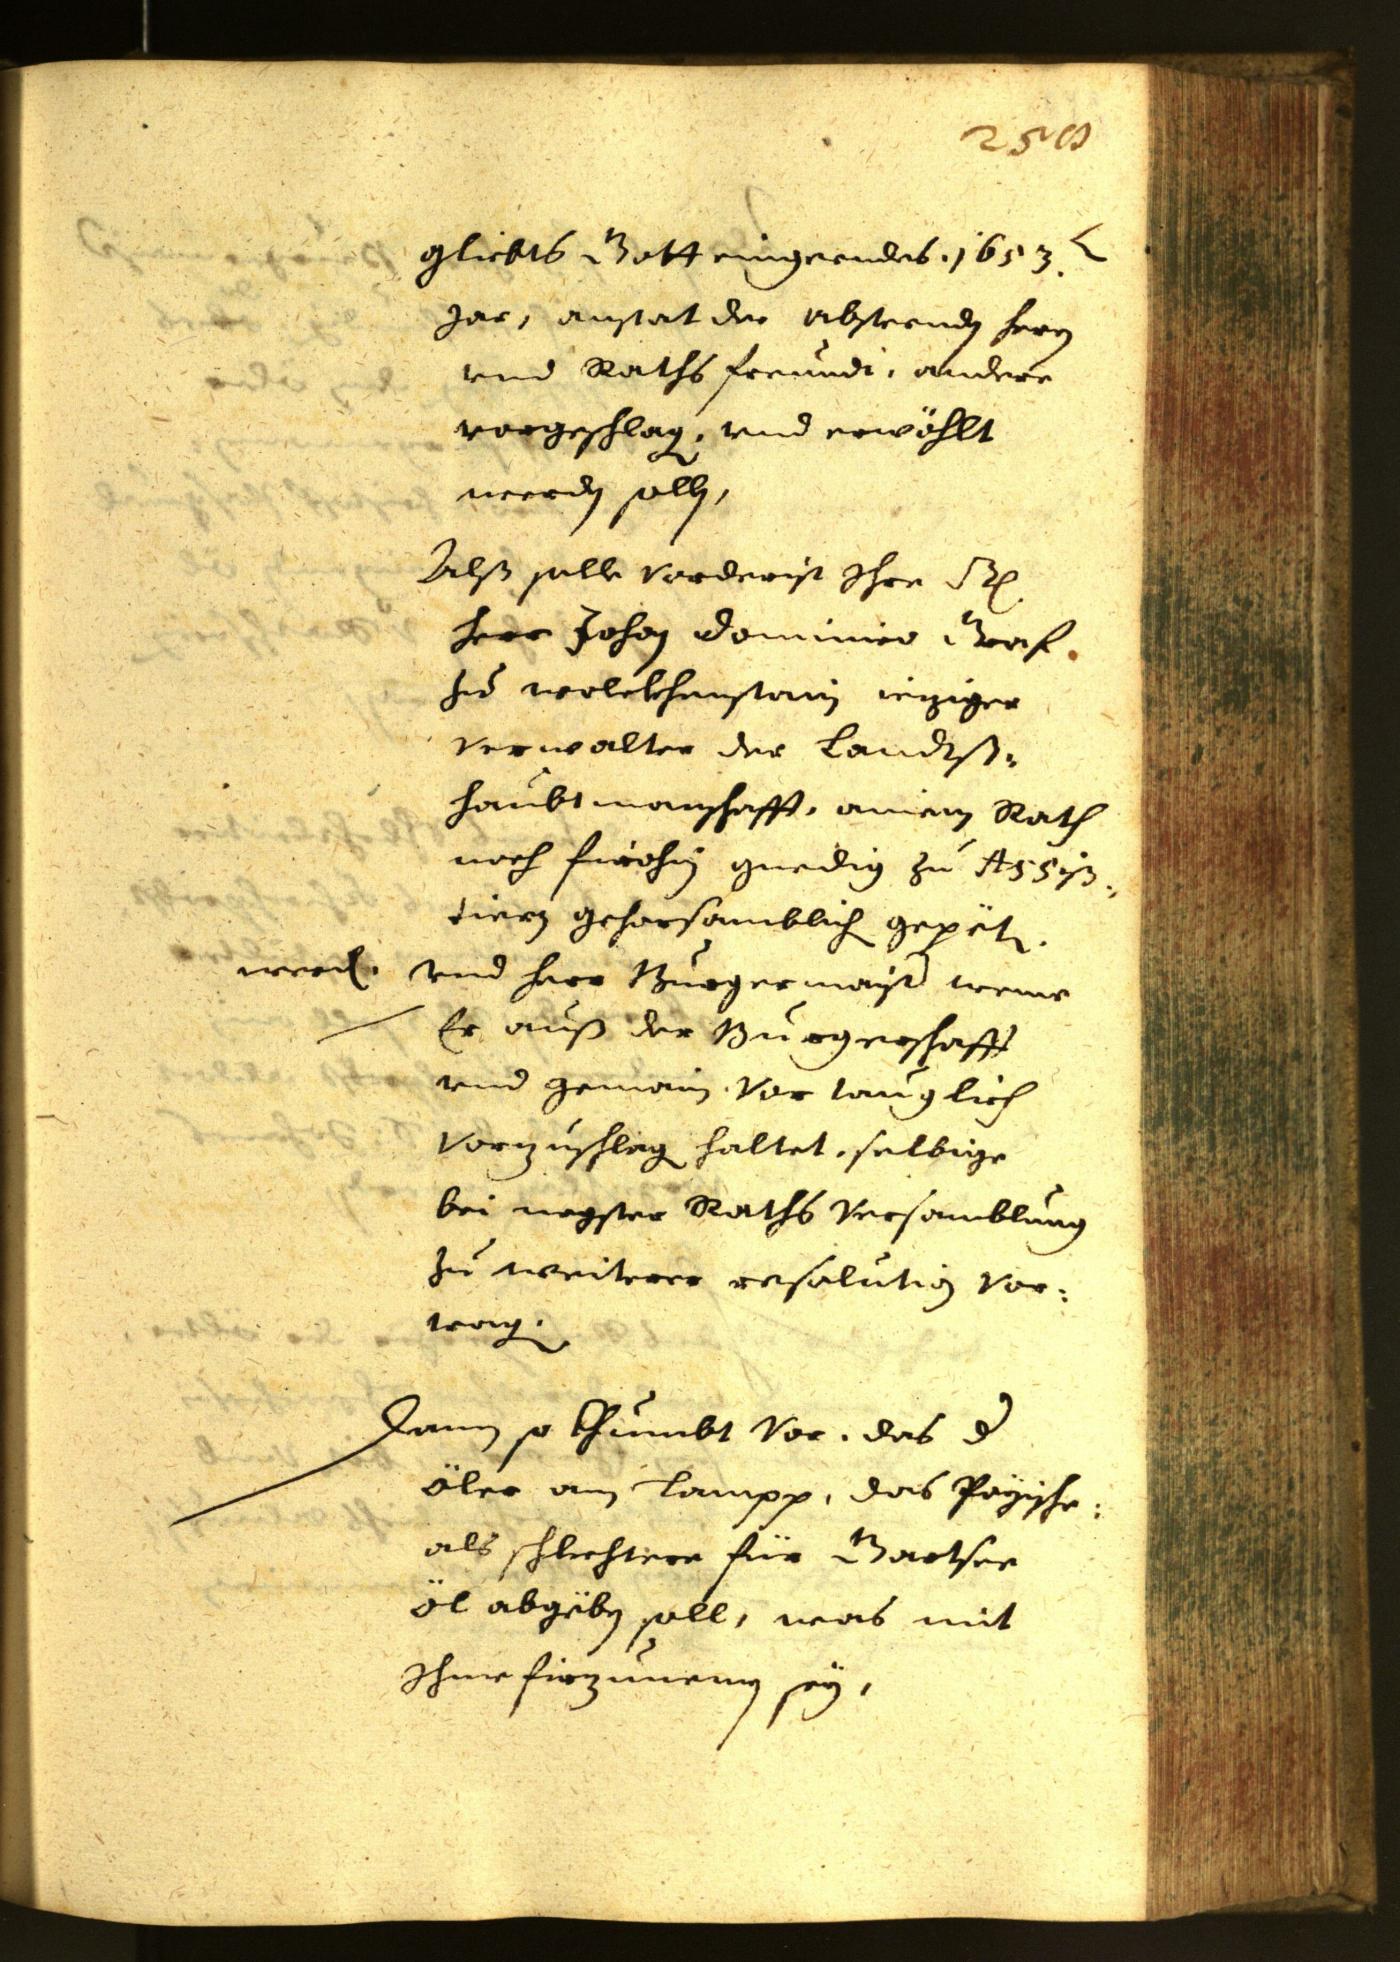 250
gliebts Gott eingeendes 1653.
Jar, anstat der absterndn herrn
vnd Raths freundt, andere
vorgeschlagn, vnd erwöhlt
werdn solln,
Alß solle Vorderist Ihre
Herr Johan Dominico Graf
zu wolckhenstain ieziger
Verwalter der Landtß-
haubtmanschafft, ainem Rath
noch fürohin gnedig zu Assiß-
tiern gehorsamblich gepëtn
werdn. vnd herr Burgermaister weme
Er auß der Burgerschafft
vnd gemain Vor tauglich
Vorzuschlagn haltet, selbige
bei negster Raths Versamblung
zu weiterer resolution Vor-
tragn.
Dann so khumbt Vor, das d
öler am Lampp, das
als schlechtere für Gartsee
Öl abgëbn soll, was mit
Ihme fürzunemen seÿ,